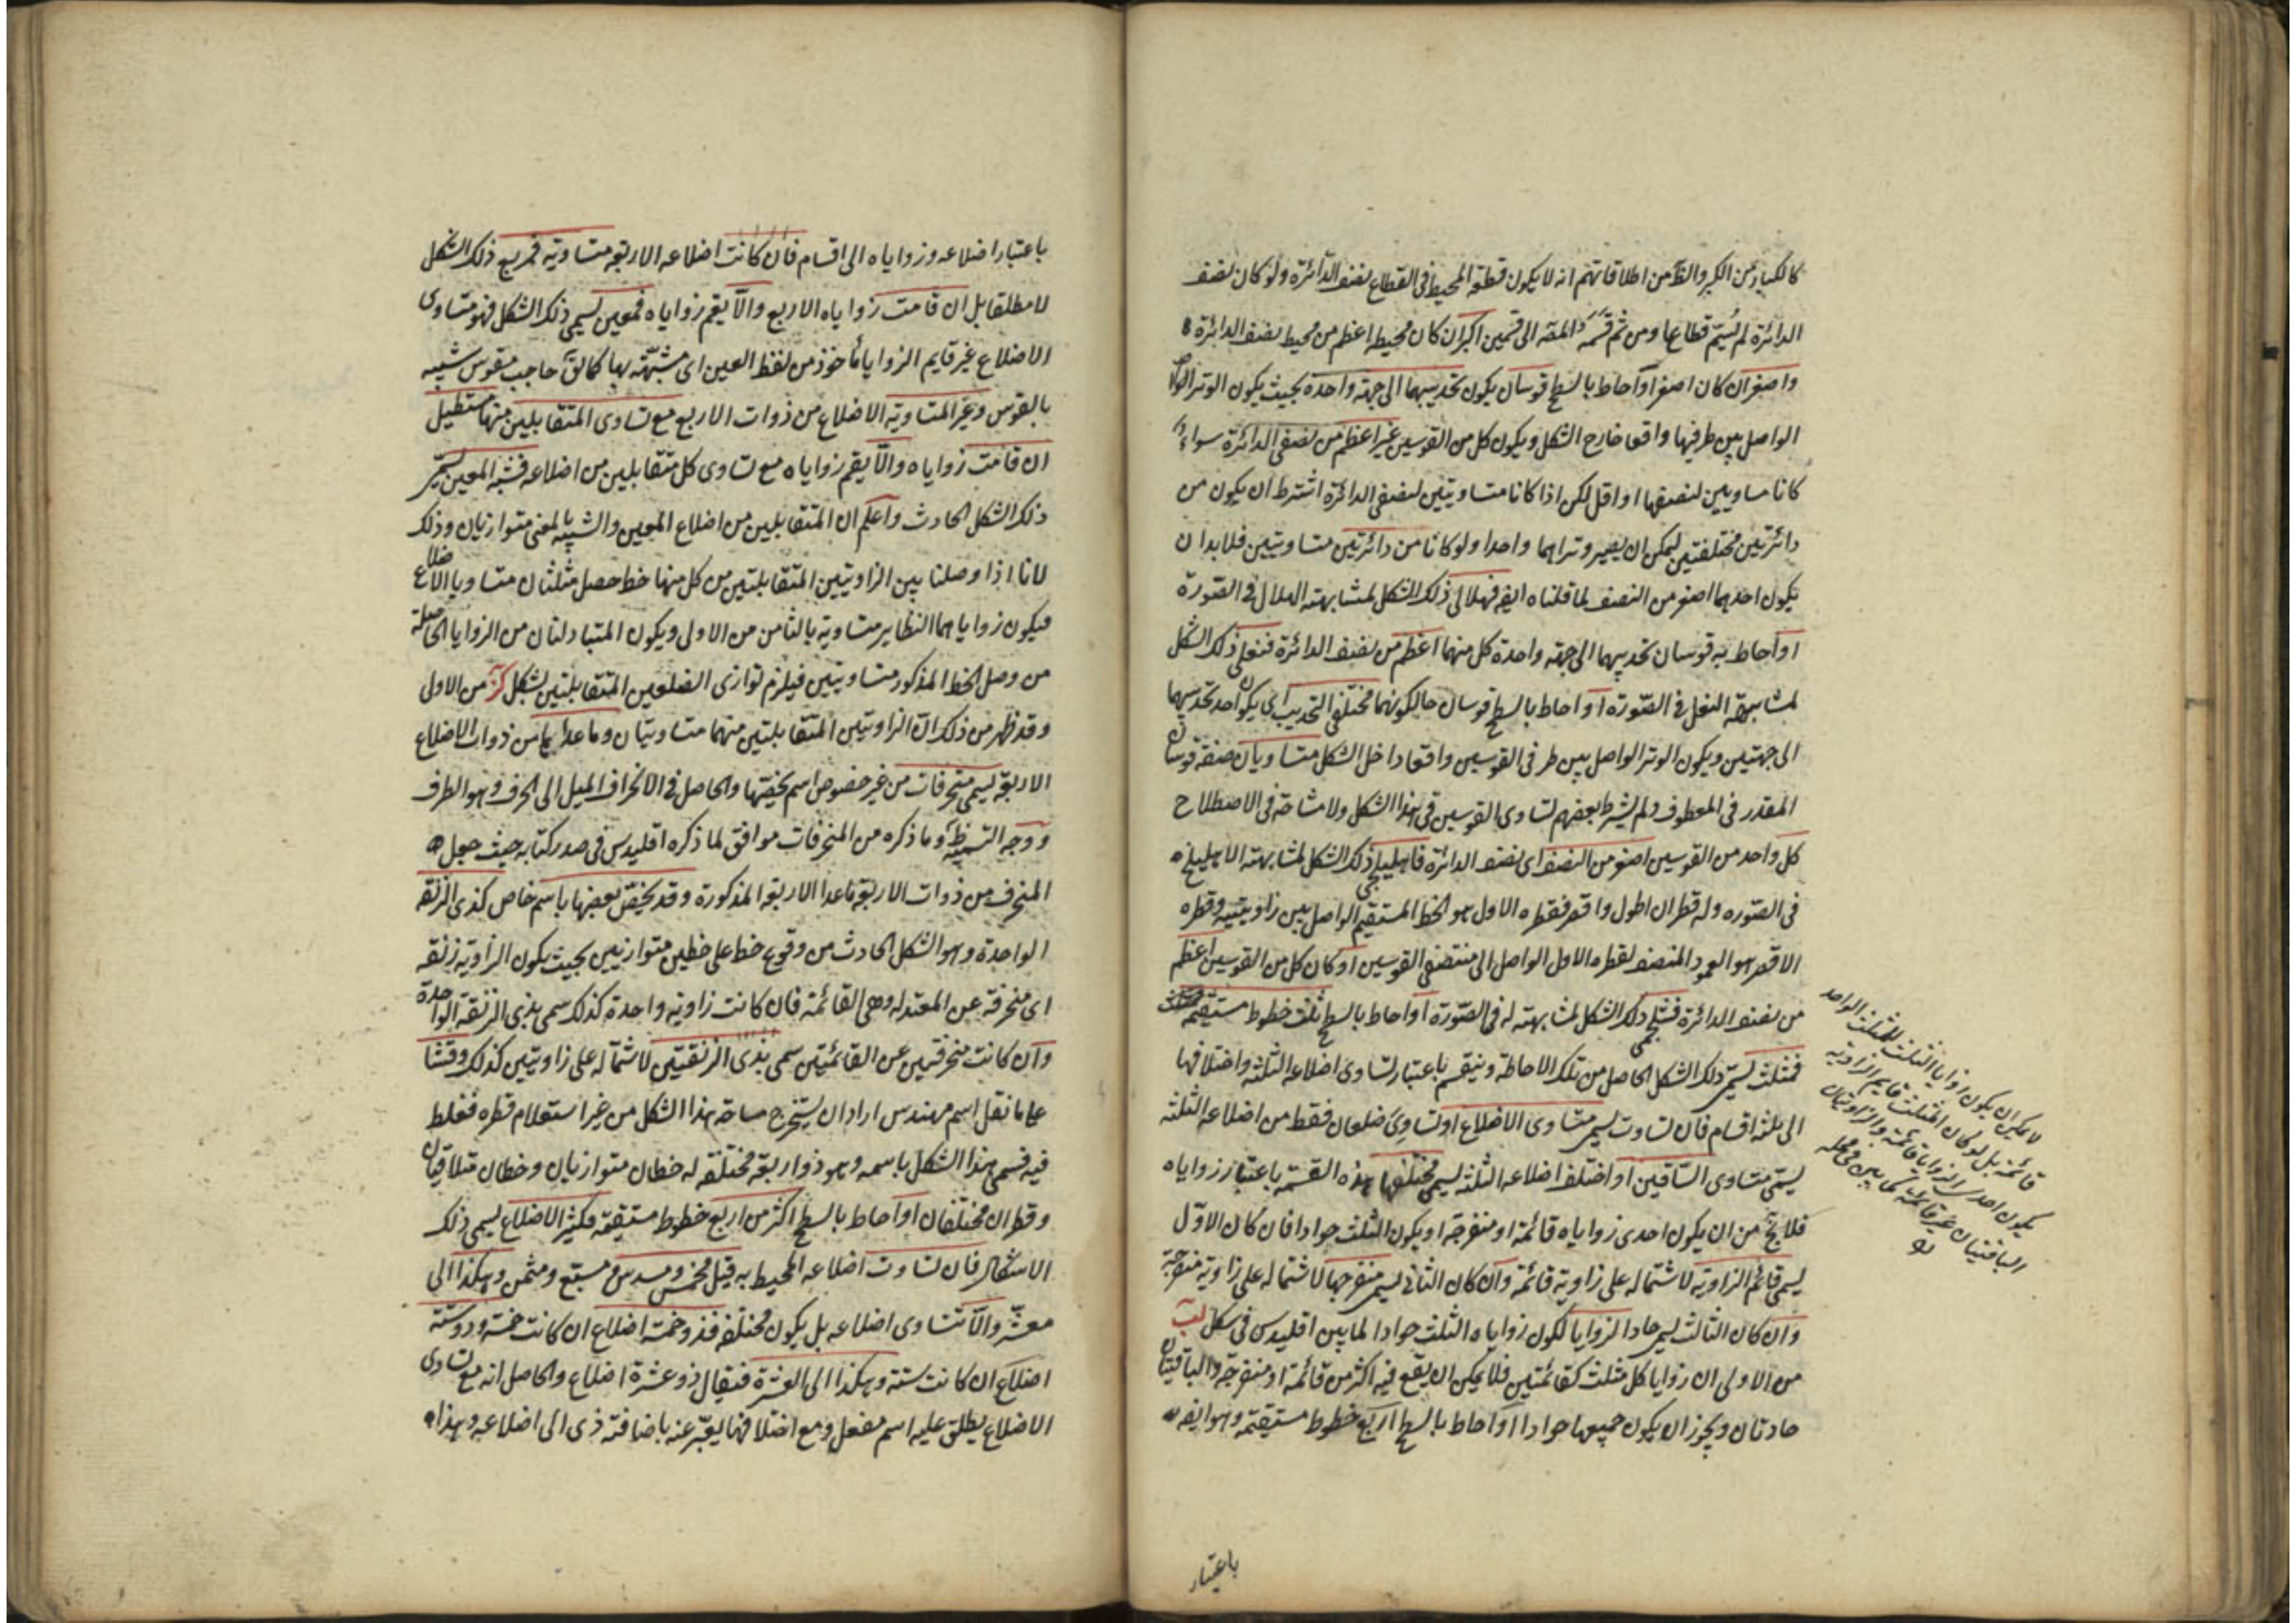 كالكبار من الكبر والظ من اطلاقاتهم انه لا يكون قطعة المحيط فى القطاع نصف الدائرة ولو كان نصف
الدائرة لم يسم قطاعا ومن ثم قسمه المصَ الى قسمين اكبر ان كان محيطه اعظم من محيط نصف الدائرة
واصغر ان كان اصغر او احاط بالسطح قوسان يكون تحديبهما الى جهة واحدة بحيث يكون الوتر
الواصل بين طرفيها واقعا خارج الشكل ويكون كل من القوسين غير اعظم من نصفى الدائرة سواء
كانا مساويين لنصفها او اقل لكن اذا كانا متساويتين لنصفى الدائرة اشترط ان يكون من
دائرتين مختلفتين ليمكن ان يصير وتراهما واحدا ولو كانا من دائرتين متساويتين فلا بد ان
يكون احدهما اصغر من النصف لما قلناه ايضا فهلالى ذلك الشكل لمشابهته الهلال فى الصورة
او احاط به قوسان تحديبهما الى جهة واحدة كل منهما اعظم من نصف الدائرة فنعلى ذلك الشكل
لمشابهة النعل فى الصورة او احاط بالسطح قوسان حالكونهما مختلفى التحديب اى يكون احد تحديبهما
الى جهتين ويكون الوتر الواصل بين طرفى القوسين واقعا داخل الشكل متساويان صفة قوسان
المقدر فى المعطوف ولم يشترط بعضهم تساوى القوسين فى هذا الشكل ولا مشاحة فى الاصطلاح
كل واحد من القوسين اصغر من النصف اى نصف الدائرة فاهليلجى ذلك الشكل لمشابهته الاهليلج
فى الصوره وله قطران اطول واقصر فقطره الاول هو الخط المستقيم الواصل بين زاويتيه وقطره
الاقصر هو العمود المنصف لقطره الاول الواصل الى منتصفى القوسين او كان كل من القوسين اعظم
من نصف الدائرة فشلجمى ذلك الشكل لمشابهته له فى الصورة او احاط بالسطح ثلث خطوط مستقيمة
فمثلث يسمى ذلك الشكل الحاصل من تلك الاحاطة وينقسم باعتبار تساوى اضلاعه الثلثه واختلافها
الى ثلثة اقسام فان تساوت يسمى متساوى الاضلاع او تساوى ضلعان فقط من اضلاعه الثلثة
يسمى متساوى الساقين او اختلف اضلاعه الثلثة يسمى مختلفها هذه القسمة باعتبار زواياه
فلا يخ من ان يكون احدى زواياه قائمة او منفرجة او يكون الثلث حوادا فان كان الاول
يسمى قائم الزاوية لاشتماله على زاوية قائمة وان كان الثانى يسمى منفرجها لاشتماله على زاوية منفرجة
وان كان الثالث يسمى حاد الزوايا لكون زواياه الثلث حوادا لما بين اقليدس فى شكل لب
من الاولى ان زوايا كل مثلث كقائمتين فلا يمكن ان يقع فيه اكثر من قائمة او منفرجة والباقيتان
حادتان ويجوز ان يكون جميعها حوادا او احاط بالسطح اربع خطوط مستقيمة وهو ايضا
لا يمكن ان يكون زوايا الثلث للمثلث الواحد
قائمة بل لو كان المثلث قايم الزاوية
يكون احدى الزوايا قائمة والزاويتان
الباقيتان غير قائمة كما بين فى محله
باعتبار
باعتبار اضلاعه وزواياه الى اقسام فان كانت اضلاعه الاربعة متساوية فمربع ذلك الشكل
لا مطلقا بل ان قامت زواياه الاربع والا يقم زواياه فمعين يسمى ذلك الشكل فهو متساوى
الاضلاع غير قايم الزوايا مأخوذ من لفظ العين اى مشبهة بها كما لق حاجب مقوس شبيه
بالقوس وغير المتساوية الاضلاع من ذوات الاربع مع تساوى المتقابلين منها مستطيل
ان قامت زواياه والا يقم زواياه مع تساوى كل متقابلين من اضلاعه فشبه المعين يسمى
ذلك الشكل الحادث واعلم ان المتقابلين من اضلاع المعين والشبيه بالمعنى متوازيان وذلك
لانا اذا وصلنا بين الزاويتين المتقابلتين من كل منها خط حصل مثلثان متساويا الاضلاع
فيكون زواياهما النظاير متساوية بالثامن من الاولى ويكون المتبادلتان من الزوايا الحاصلة
من وصل الخط المذكور متساويتين فيلزم توازى الضلعين المتقابلتين لشكل كز من الاولى
وقد ظهر من ذلك ان الزاويتين المتقابلتين منهما متساويتان وما عداهما من ذوات الاضلاع
الاربعة يسمى منحرفات من غير خصوص اسم يخصها والحاصل فى الانحراف الميل الى الحرف وهو الطرف
ووجه التسمية ظ وما ذكره من المنحرفات موافق لما ذكره اقليدس فى صدر كتابه حيث جعل
المنحرف من ذوات الاربعة ماعدا الاربعة المذكورة وقد يخص بعضها باسم خاص كذى الزنقة
الواحدة وهو الشكل الحادث من وقوع خط على خطين متوازيين بحيث يكون الزاوية زنقة
اى منحرفة عن المعتدله وهى القائمة فان كانت زاوية واحدة كذلك سمى بذى الزنقة الواحدة
وان كانت منحرفتين عن القائمتين سمى بذى الزنقتين لاشتماله على زاويتين كذلك وقثا
على ما نقل اسم مهندس اراد ان يستخرج مساحة هذا الشكل من غير استعلام قطره فغلط
فيه فسمى هذا الشكل باسمه وهو ذو اربعة مختلفة له خطان متوازيان وخطان متلاقيان
وقطران مختلفان او احاط بالسطح اكثر من اربع خطوط مستقيمة فكثير الاضلاع يسمى ذلك
الاشكال فان تساوت اضلاعه المحيط به قيل مخمس ومسدس ومسبع ومثمن وهكذا الى
معشر والا تتساوى اضلاعه بل يكون مختلفة فذو خمسة اضلاع ان كانت خمسة وذو ستة
اضلاع ان كانت ستة وهكذا الى العشرة فيقال ذو عشرة اضلاع والحاصل انه مع تساوى
الاضلاع يطلق عليه اسم مفعل ومع اختلافها يعبر عنه باضافة ذى الى اضلاعه وهذا